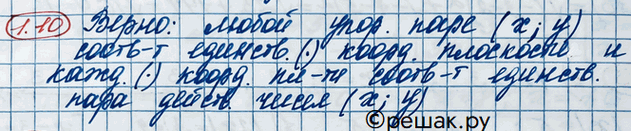 1.10 Верно: любой упор. паре (x; y)
соотв-т единств. (·) коорд. плоскости и
кажд. (·) коорд. пл-ти соотв-т единств.
пара действ. чисел (x; y)
©решак.ру